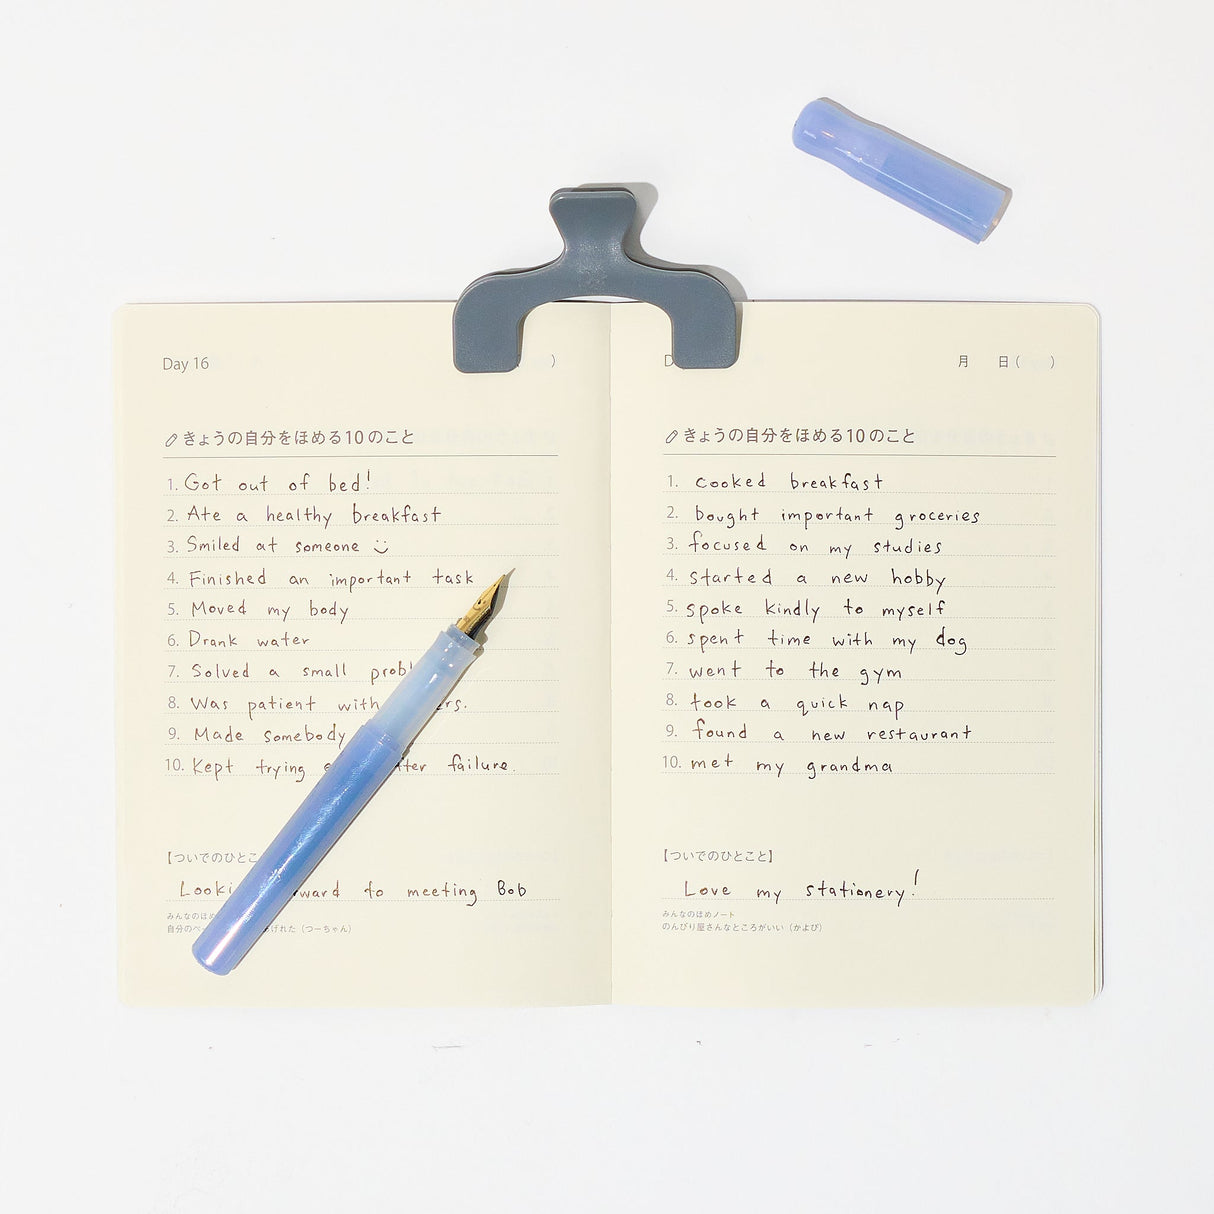 Day 16 )
きょうの自分をほめる10のこと
1. Got out of bed!
2. Ate a healthy breakfast
3. Smiled at someone
4. Finished an important task
5. Moved my body
6. Drank water
7. Solved a small
8. Was patient with
9. Made somebody
10. Kept trying failure.
【ついでのひとこ
to meeting Bob
みんなのほめ
自分の けれた（つーちゃん）
月 日( )
きょうの自分をほめる10のこと
1. cooked breakfast
2. bought important groceries
3. focused on my studies
4. started a new hobby
5. spoke kindly to myself
6. spent time with my dog
7. went to the gym
8. took a quick nap
9. found a new restaurant
10. met my grandma
【ついでのひとこと】
Love my stationery!
みんなのほめノート
のんびり屋さんなところがいい（かよぴ）